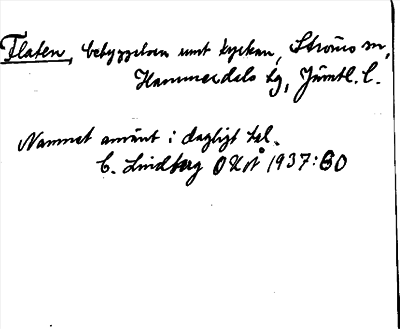 Flaten, bebyggelsen runt kyrkan, Ströms sn,
Hammerdals tg, Jämtl. l.
Namnet använt i dagligt tal.
C. Lindberg OUÅ 1937:60